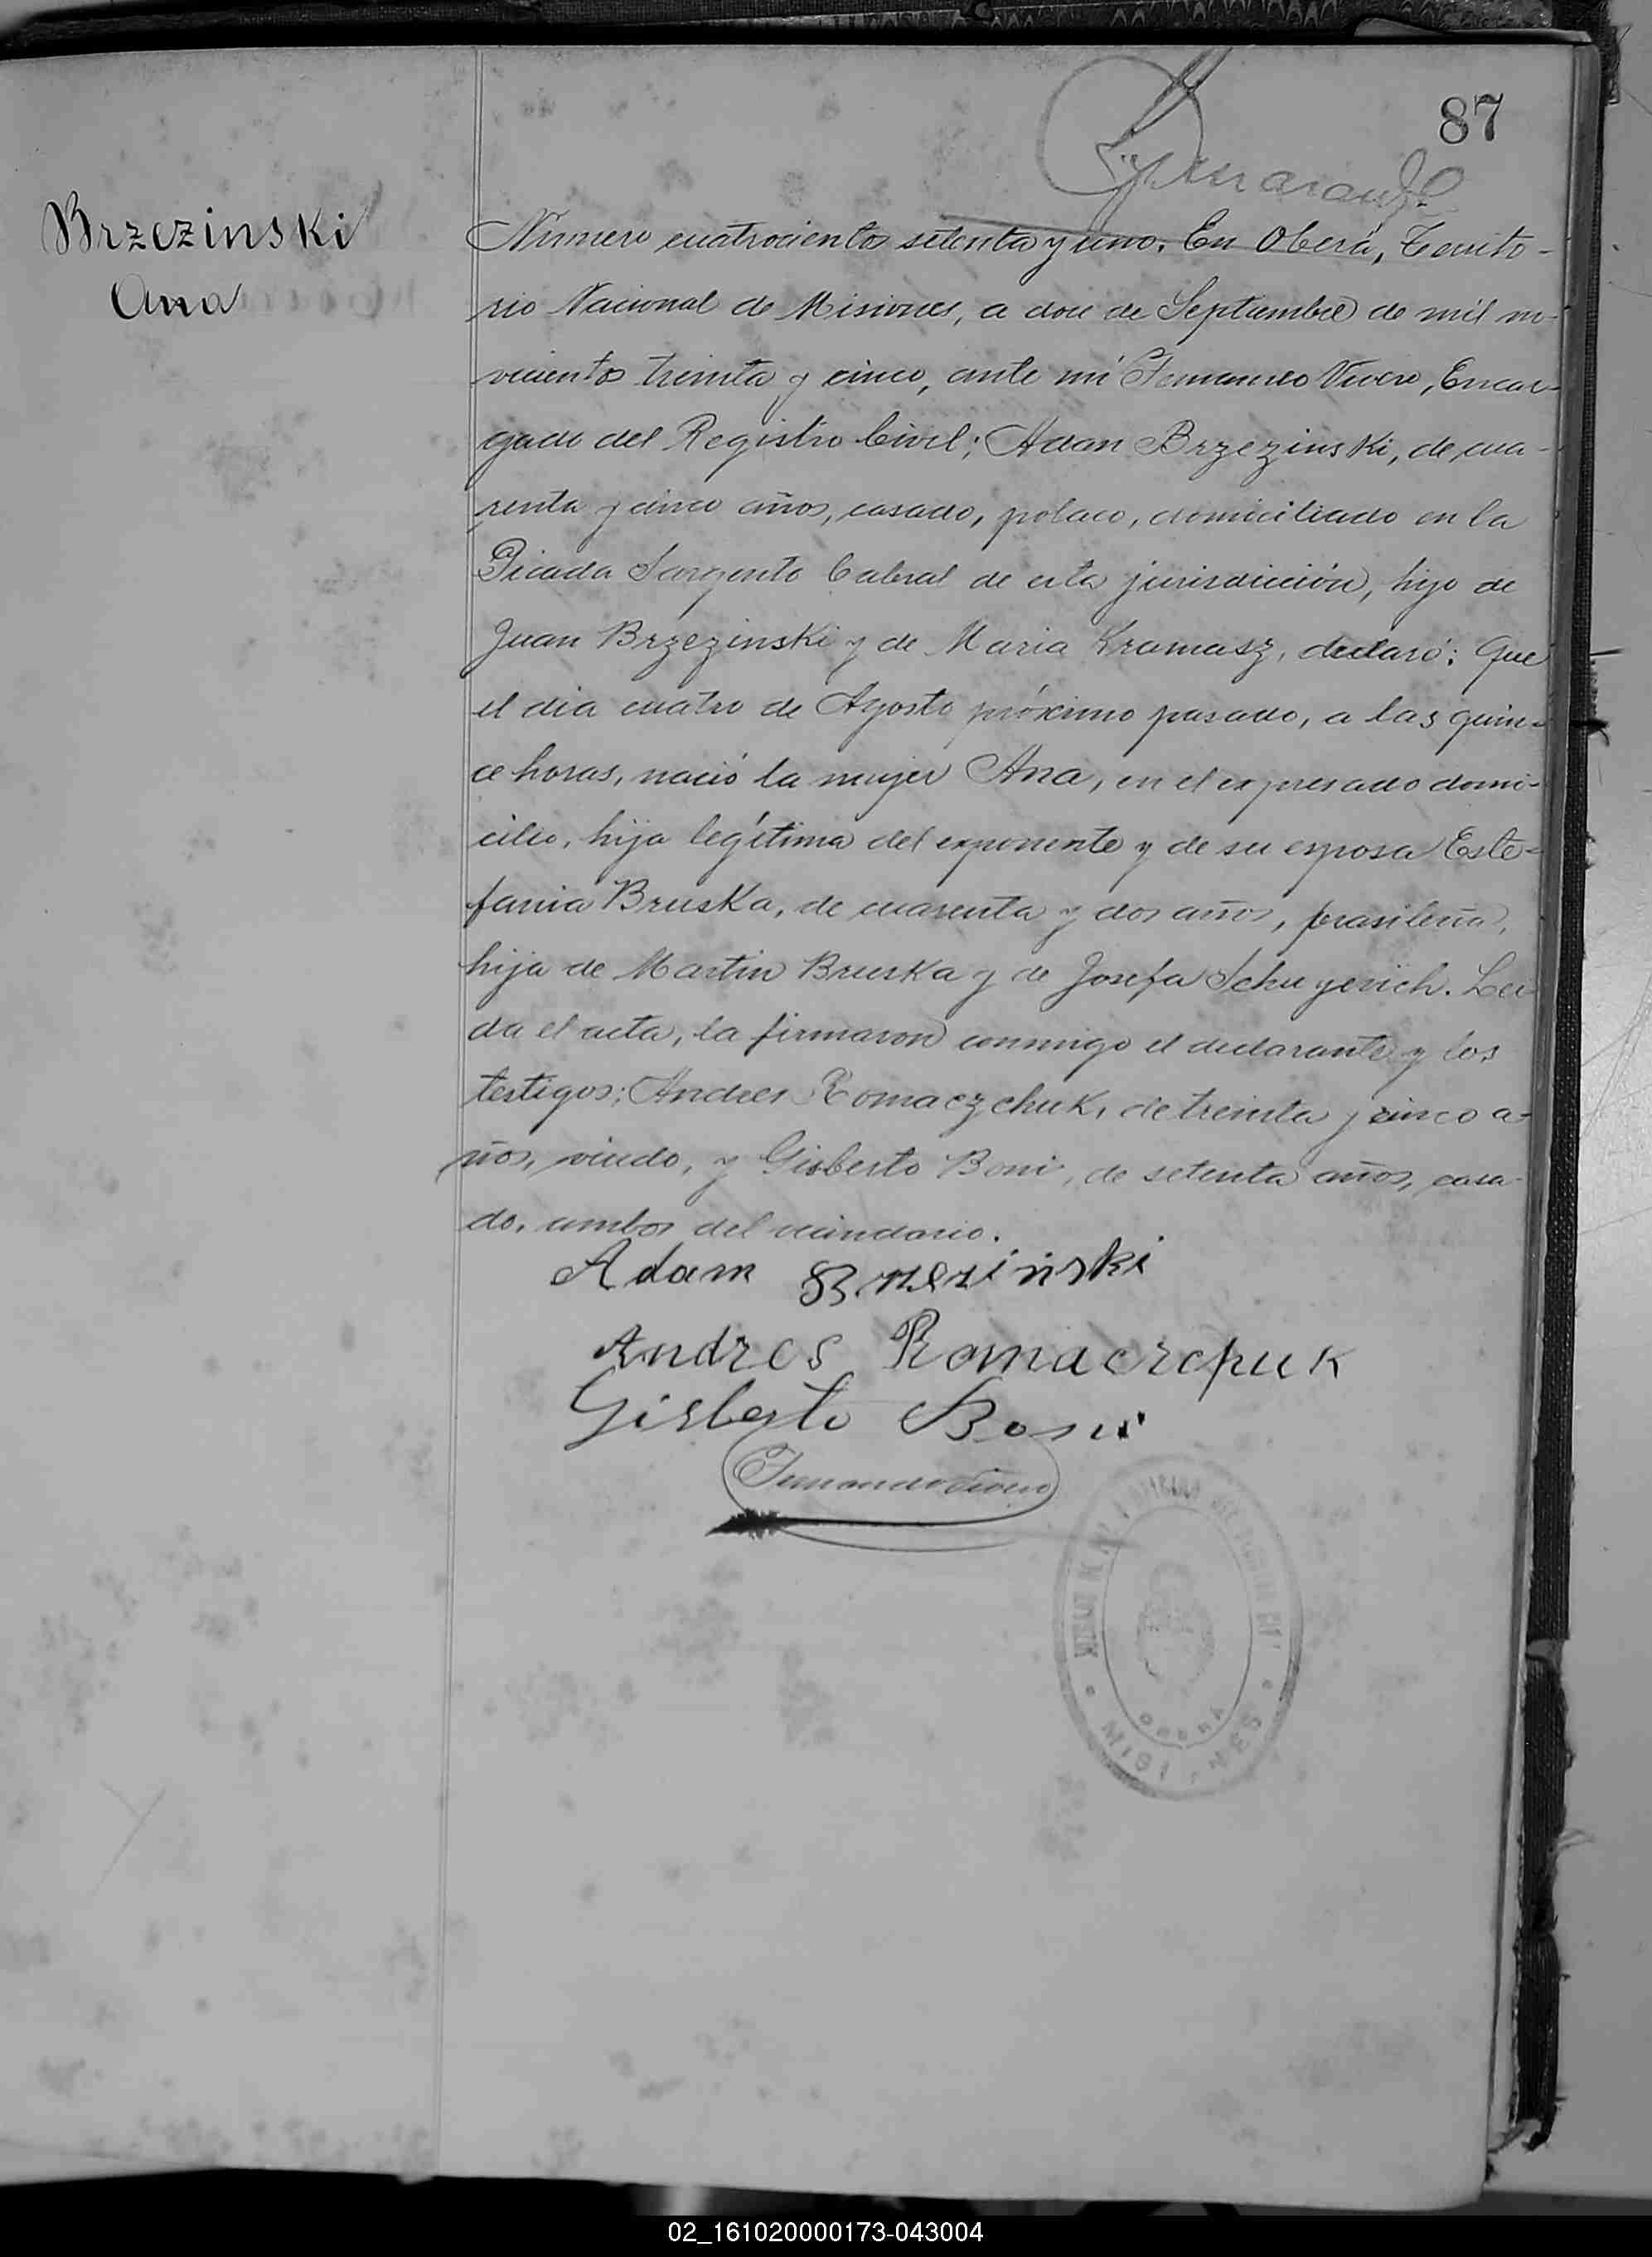 87
Brzezinski
Ana
Número cuatrocientos setenta y uno. En Oberá, Territo-
rio Nacional de Misiones, a doce de Septiembre de mil no-
vecientos treinta y cinco, ante mí Fernando Vivero, Encar-
gado del Registro Civil; Adan Brzezinski, de cua-
renta y cinco años, casado, polaco, domiciliado en la
Picada Sargento Cabral de esta jurisdicción, hijo de
Juan Brzezinski y de Maria Kramasz, declaró: Que
el día cuatro de Agosto próximo pasado, a las quin-
ce horas, nació la mujer Ana, en el expresado domi-
cilio, hija legítima del exponente y de su esposa Este-
fania Bruska, de cuarenta y dos años, brasileña,
hija de Martin Bruska y de Josefa. Lei-
da el acta, la firmaron conmigo el declarante y los
testigos; Andres Romaczchuk, de treinta y cinco a-
ños, viudo, y Gisberto Boni, de setenta años, casa-
do, ambos del vecindario.
Adam Brzezinski
Andres
Gisberto Boni
Fernando Vivero
MISIONES
02_161020000173-043004